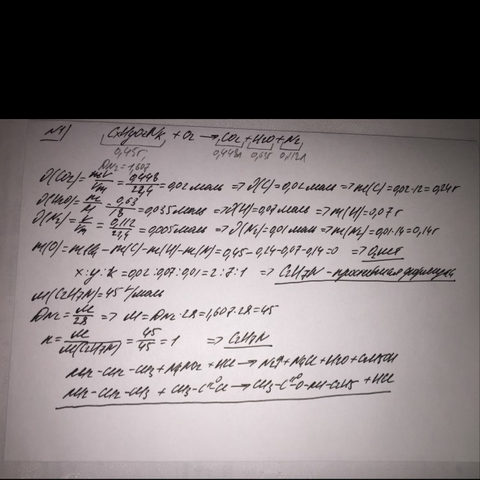 №4) CxHyOzNk + O2 → CO2 + H2O + N2
0,45г 0,448л 0,63г 0,112л
DN2 = 1,607
ν(CO2) = V/Vm = 0,448/22,4 = 0,02 моль => ν(C) = 0,02 моль => m(C) = 0,02·12 = 0,24г
ν(H2O) = m/M = 0,63/18 = 0,035 моль => ν(H) = 0,07 моль => m(H) = 0,07г
ν(N2) = V/Vm = 0,112/22,4 = 0,005 моль => ν(N) = 0,01 моль => m(N) = 0,01·14 = 0,14г
m(O) = m(в-ва) - m(C) - m(H) - m(N) = 0,45-0,24-0,07-0,14 = 0 => O нет
x:y:k = 0,02:0,07:0,01 = 2:7:1 => C2H7N - простейшая формула
M(C2H7N) = 45 г/моль
DN2 = M/28 => M = DN2·28 = 1,607·28 = 45
n = M/M(C2H7N) = 45/45 = 1 => C2H7N
NH2-CH2-CH3 + NaNO2 + HCl → N2↑ + NaCl + H2O + C2H5OH
NH2-CH2-CH3 + CH3-C=O Cl → CH3-C=O-NH-C2H5 + HCl